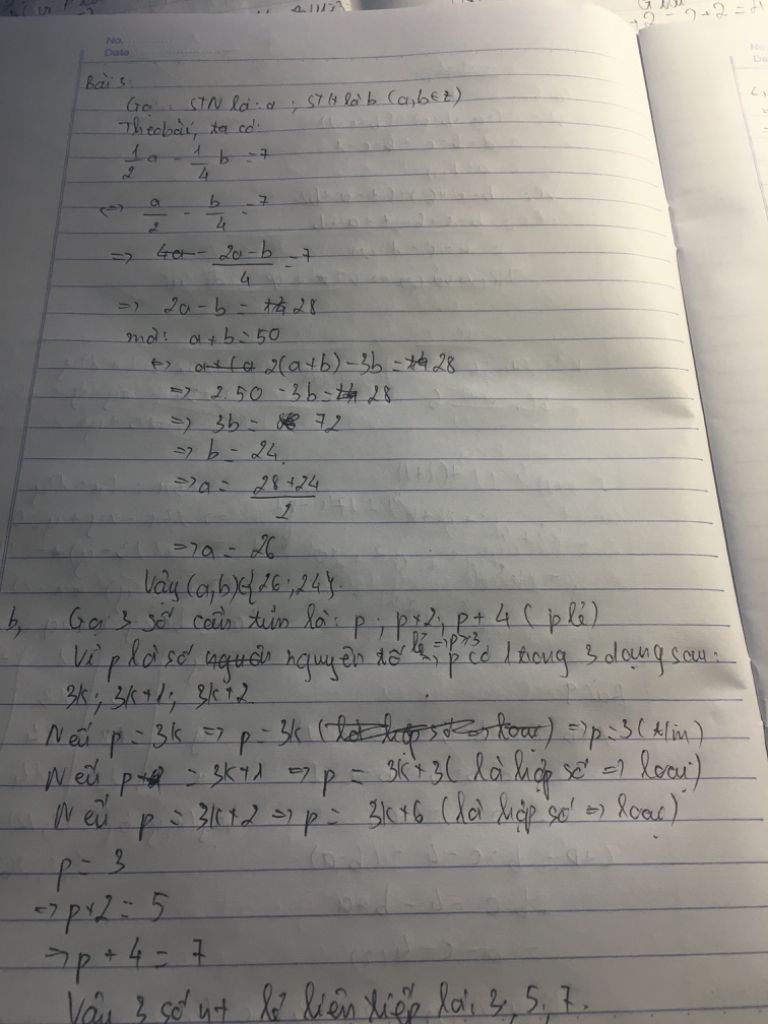 No.
Date
Bài 5:
Gọi STN là: a ; STH là b (a,b∈Z)
Theo bài, ta có:
1/2 a - 1/4 b = 7
<=> a/2 - b/4 = 7
=> (2a-b)/4 = 7
=> 2a-b = 28
mà: a+b = 50
<=> 2(a+b) - 3b = 28
=> 2.50 - 3b = 28
=> 3b = 72
=> b = 24.
=> a = (28+24)/2
=> a = 26
Vậy (a,b)∈{26;24}.
b, Gọi 3 số cần tìm là: p; p+2; p+4 (p lẻ)
Vì p là số nguyên tố lẻ => p≥3, p có 1 trong 3 dạng sau:
3k; 3k+1; 3k+2.
Nếu p = 3k => p = 3k => p=3 (t/m)
Nếu p = 3k+1 => p = 3k+3 (là hợp số => loại)
Nếu p = 3k+2 => p = 3k+6 (là hợp số => loại)
p = 3
=> p+2 = 5
=> p+4 = 7
Vậy 3 số nt lẻ liên tiếp là: 3, 5, 7.